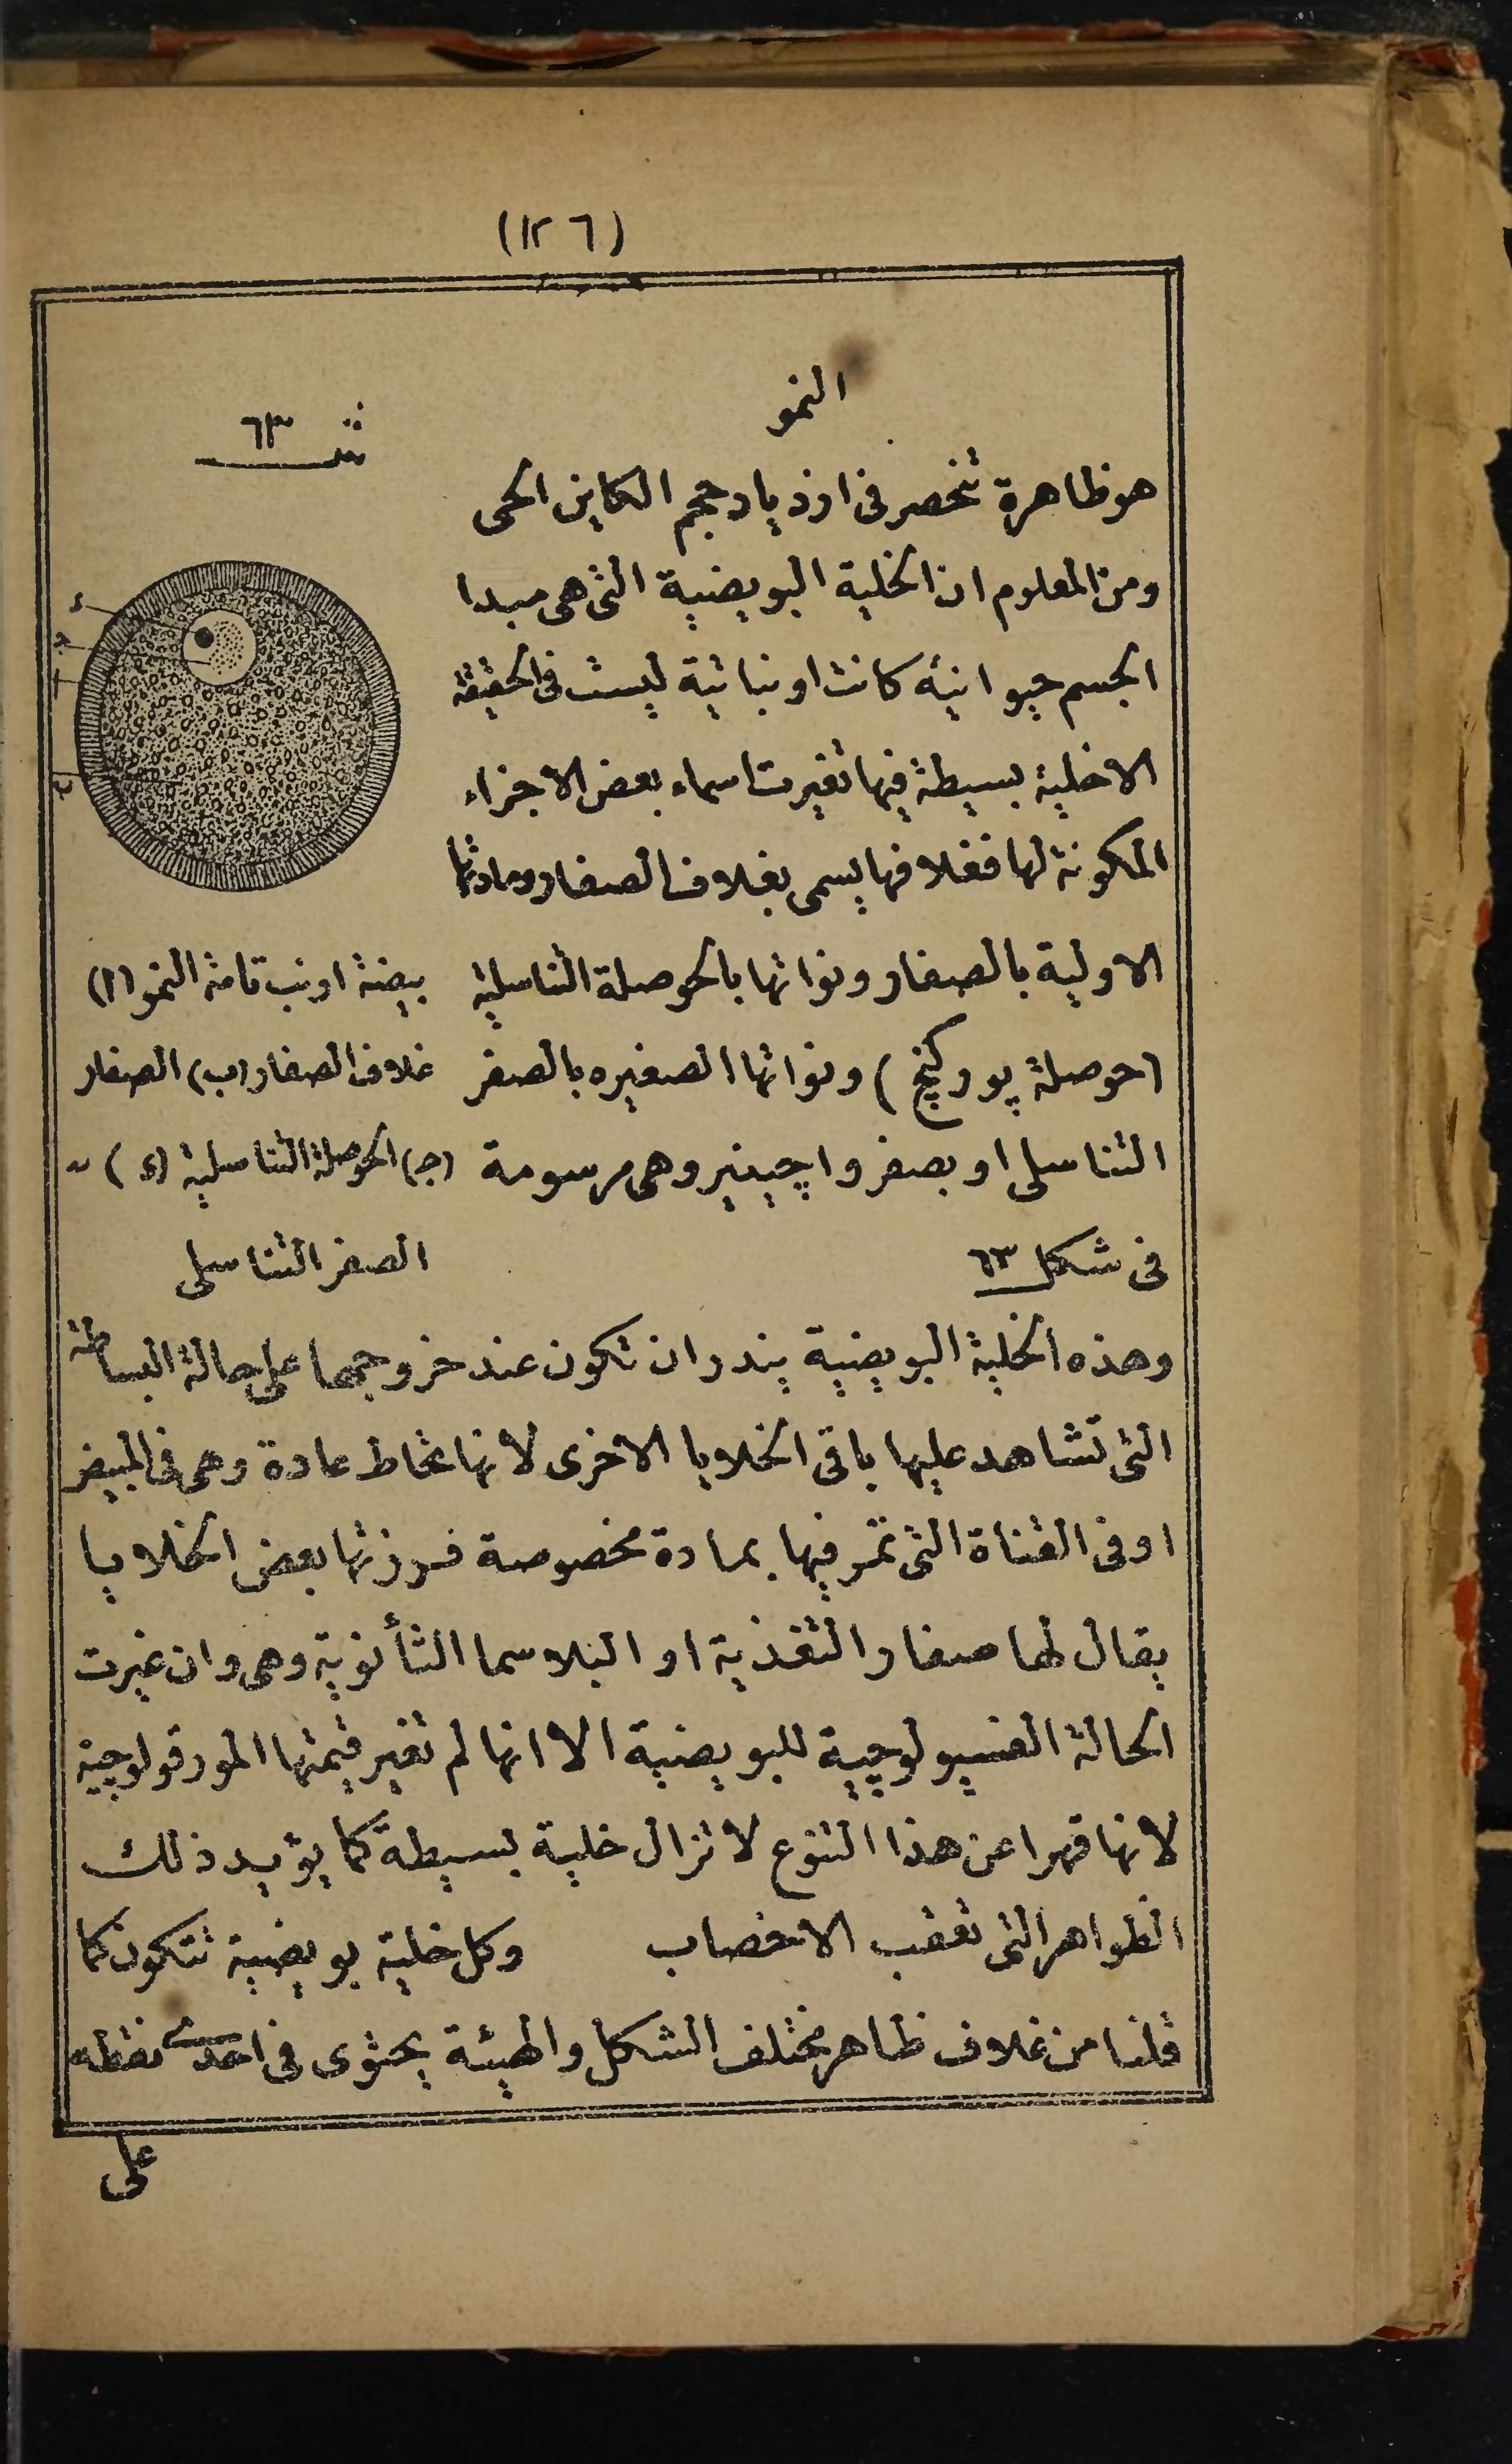 (١٢٦)
النمو
هو ظاهرة تنحصر فى ازدياد حجم الكاين الحى
ومن المعلوم ان الخلية البويضية التى هى مبدا
الجسم حيوانية كانت او نباتية ليست فى الحقيقة
الاخلية بسيطة فيها تغيرت اسماء بعض الاجزاء
المكونة لها فغلافها يسمى بغلاف الصفار ومادتها
الاولية بالصفار ونواتها بالحوصلة التناسلية
(حوصلة پوركنج) ونواتها الصغيره بالصفر
التناسلى او بصفر واچينير وهى مرسومة
فى شكل ٦٣
شـ ٦٣
د
ج
ا
ب
بيضة ارنب تامة النمو (ا)
غلاف الصفار (ب) الصفار
(ج) الحوصلة التناسلية (د)
الصفر التناسلى
وهذه الخلية البويضية يندر ان تكون عند خروجها على حالة البساطة
التى تشاهد عليها باقى الخلايا الاخرى لانها تحاط عادة وهى فى المبيض
او فى القناة التى تمر فيها بمادة مخصوصة فرزتها بعض الخلايا
يقال لها صفار التغذية او البلاسما الثأنوية وهى وان غيرت
الحالة الفسيولوچية للبويضية الا انها لم تغير قيمتها المورفولوچية
لانها قهرا عن هذا التنوع لا تزال خلية بسيطة كما يؤيد ذلك
الظواهر التى تعقب الاخصاب وكل خلية بويضية تتكون كما
قلنا من غلاف ظاهر مختلف الشكل والهيئة يحتوى فى احدى نقطه
على